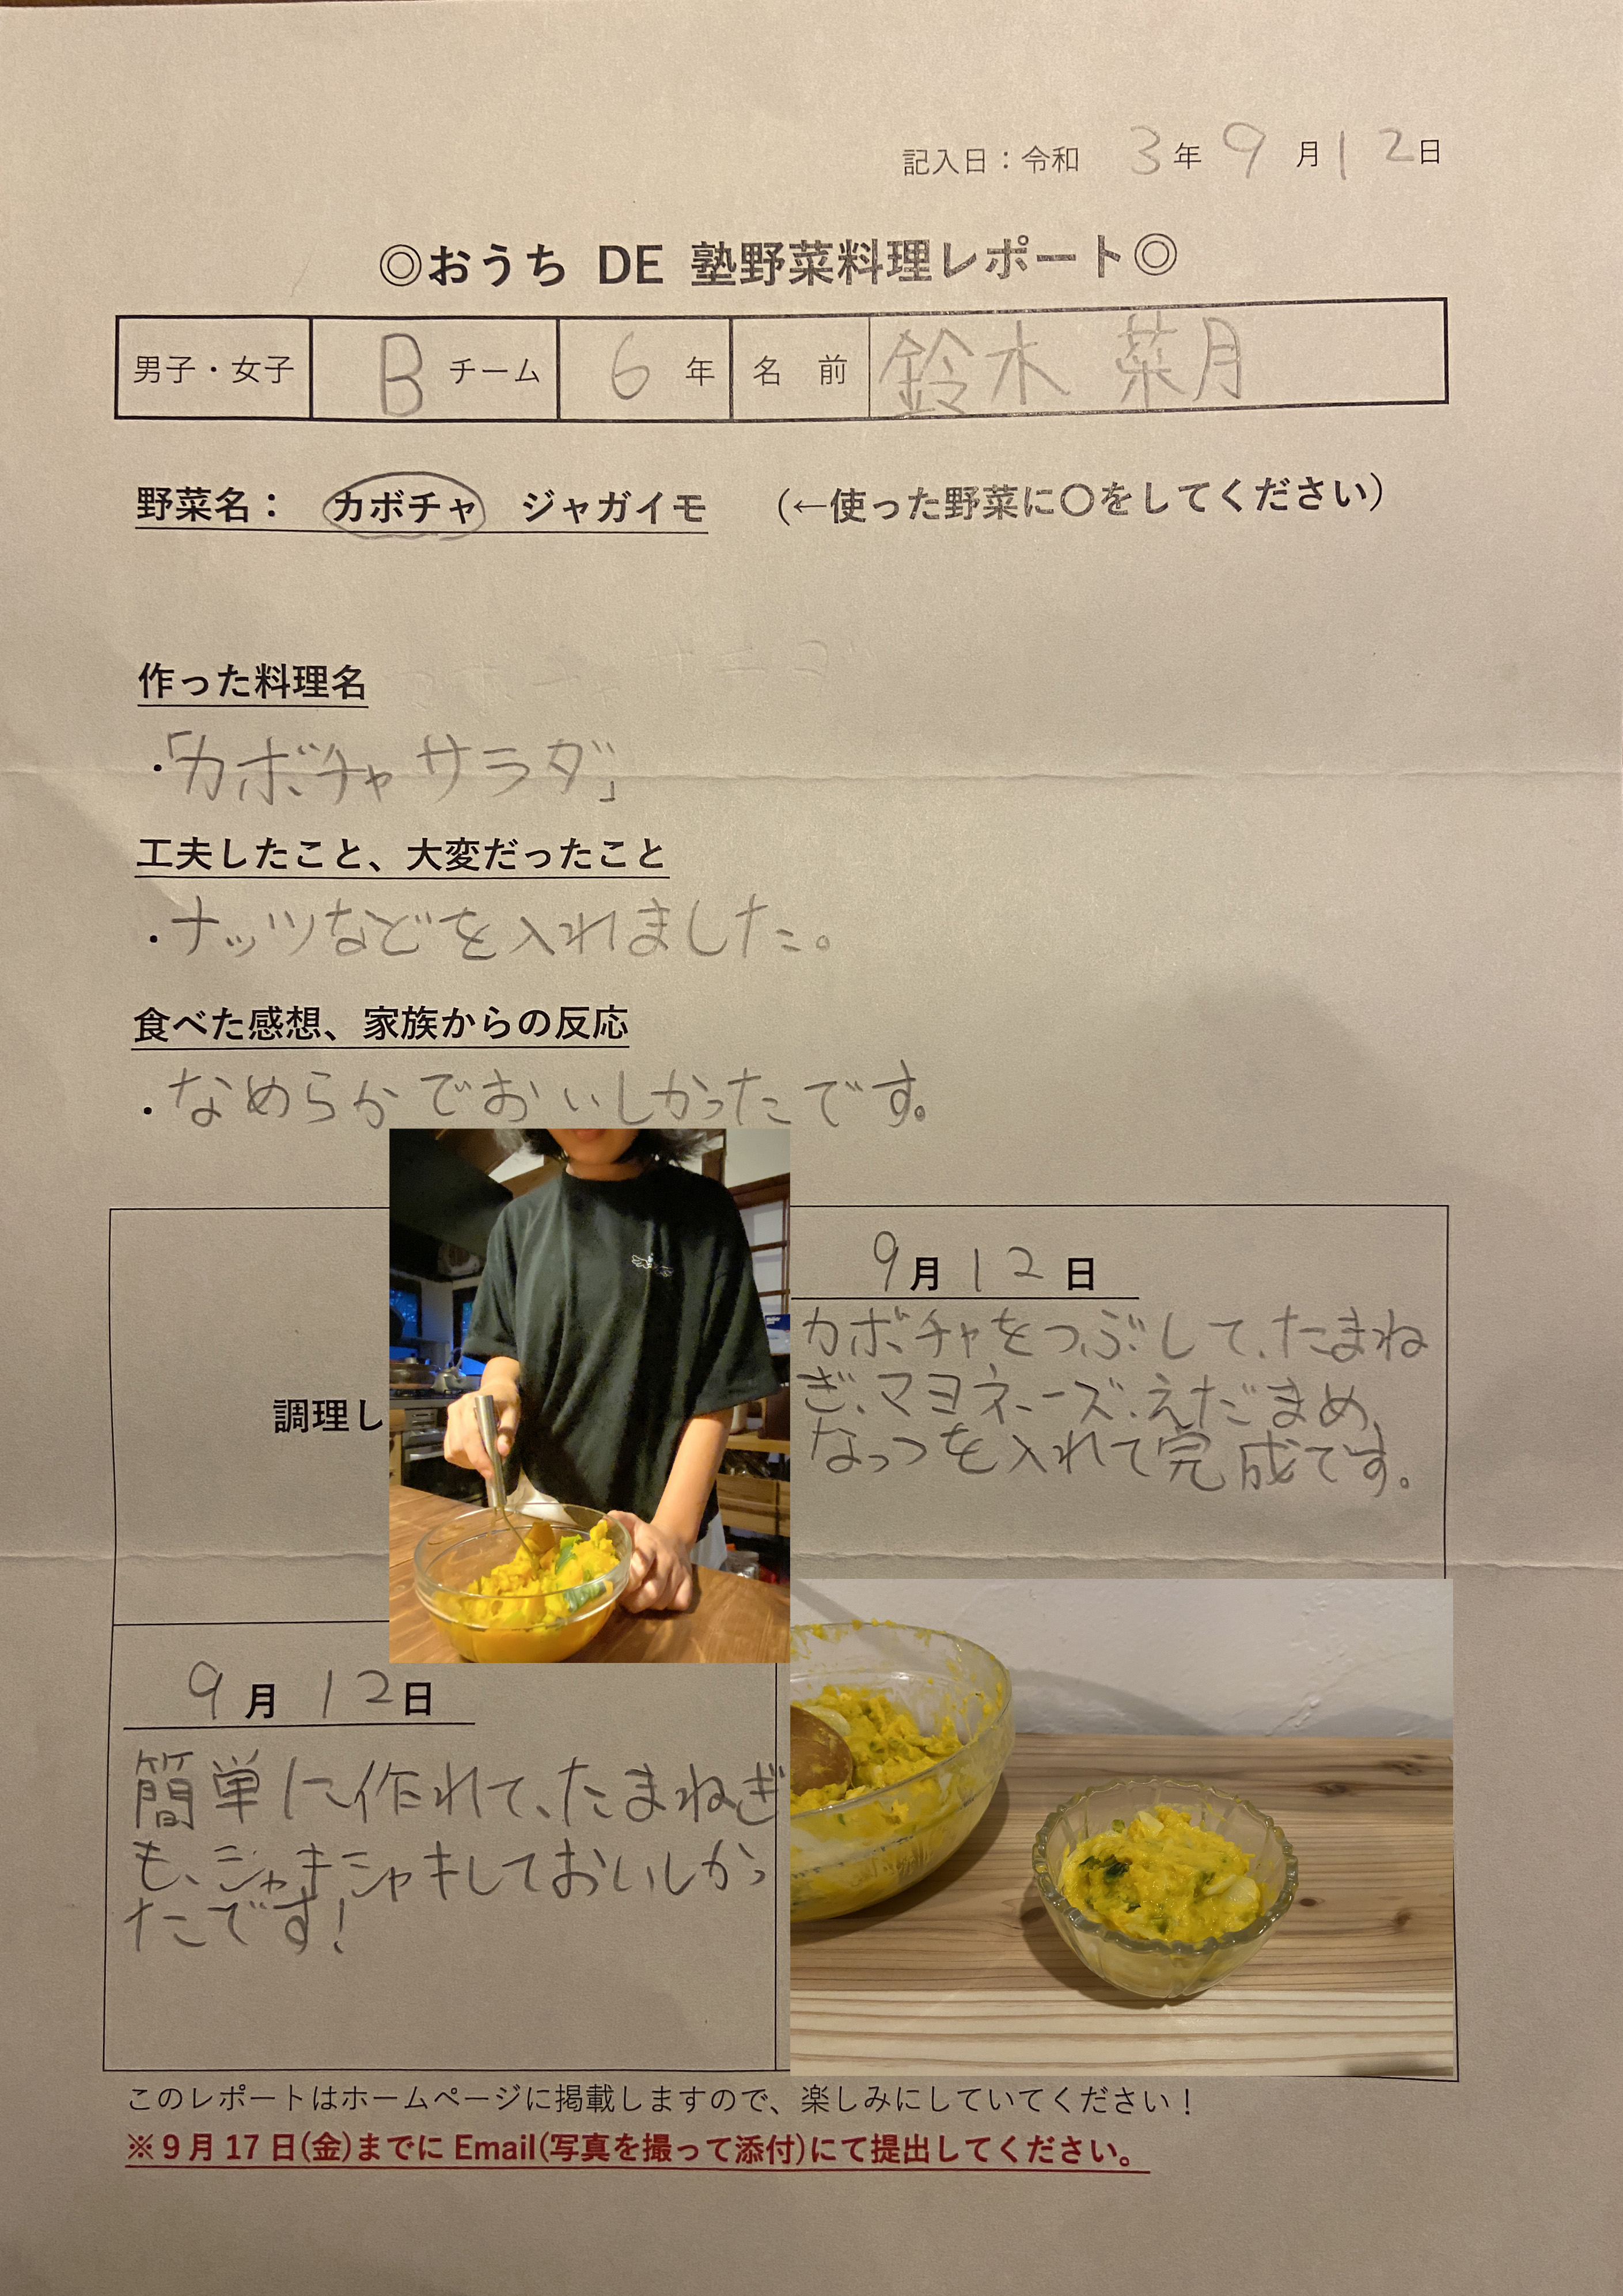 記入日：令和 3年 9月12日
◎おうち DE 塾野菜料理レポート◎
男子・女子 Bチーム 6年 名 前 鈴木 菜月
野菜名： カボチャ ジャガイモ （←使った野菜に〇をしてください）
作った料理名
・「カボチャサラダ」
工夫したこと、大変だったこと
・ナッツなどを入れました。
食べた感想、家族からの反応
・なめらかでおいしかったです。
調理し
9月12日
カボチャをつぶして、たまね
ぎ、マヨネーズ、えだまめ、
なっつを入れて完成です。
9月12日
簡単に作れて、たまねぎ
も、シャキシャキしておいしかっ
たです！
このレポートはホームページに掲載しますので、楽しみにしていてください！
※9月17日(金)までにEmail(写真を撮って添付)にて提出してください。